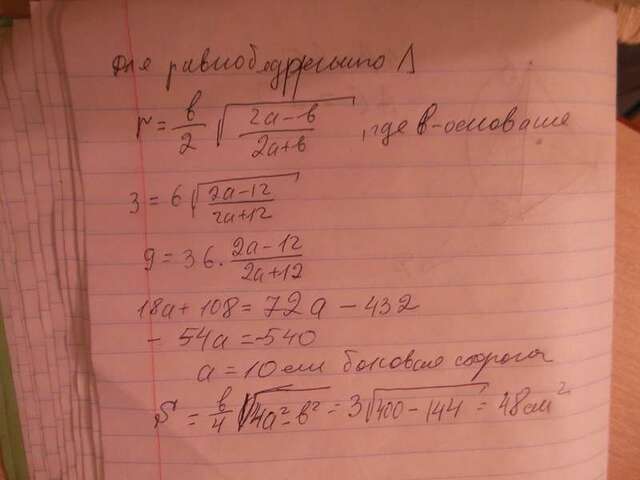 для равнобедренного Δ
r = b/2 √((2a-b)/(2a+b)), где b-основание
3 = 6√((2a-12)/(2a+12))
9 = 36 · (2a-12)/(2a+12)
18a + 108 = 72a - 432
- 54a = -540
a = 10 см боковая сторона
S = b/4 √(4a² - b²) = 3√(400-144) = 48 см²